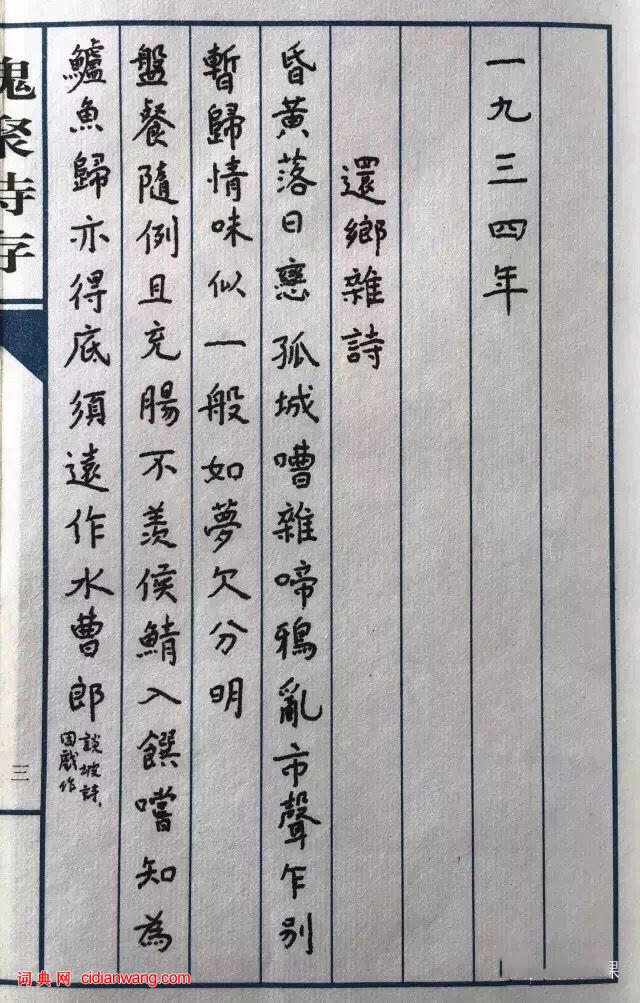 一九三四年
還鄉雜詩
昏黃落日戀孤城嘈雜啼鴉亂市聲乍別
暫歸情味似一般如夢欠分明
盤餐隨例且充腸不羨侯鯖入饌嚐知為
鱸魚歸亦得底須遠作水曹郎
談坡詩、
因戲作
槐聚詩存
三
词典网 cidianwang.com
课